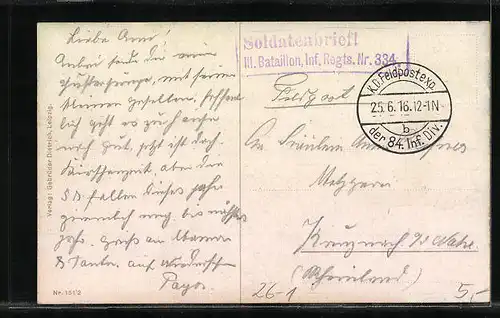 Liebe Anna!
Anbei sende Dir eine
mit seinen
kleinen Gesellen, hoffent-
lich geht es Euch auch
noch gut, jetzt ist doch
Kirschenzeit, aber die
fallen dieses Jahr
ziemlich weg bis nächstes
Jahr. Gruß an Mama
& Tante. auf Wiedersehen
Verlag: Gebrüder Dietrich, Leipzig.
Nr. 151/2
Soldatenbrief!
III. Bataillon, Inf. Regts. Nr. 334
K.D.Feldpostexp.
25.6.16.12-1N
b
der 84. Inf. Div.
Feldpost
An Fräulein
Metzgerei
Kreuznach a/d Nahe.
(Rheinland)
26-1
5,-